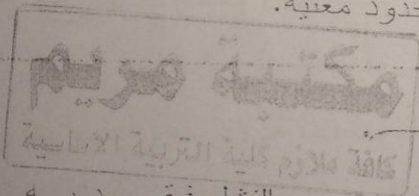 حدود معنية.
مكتبة مريم
كافة ملازم كلية التربية الاساسية